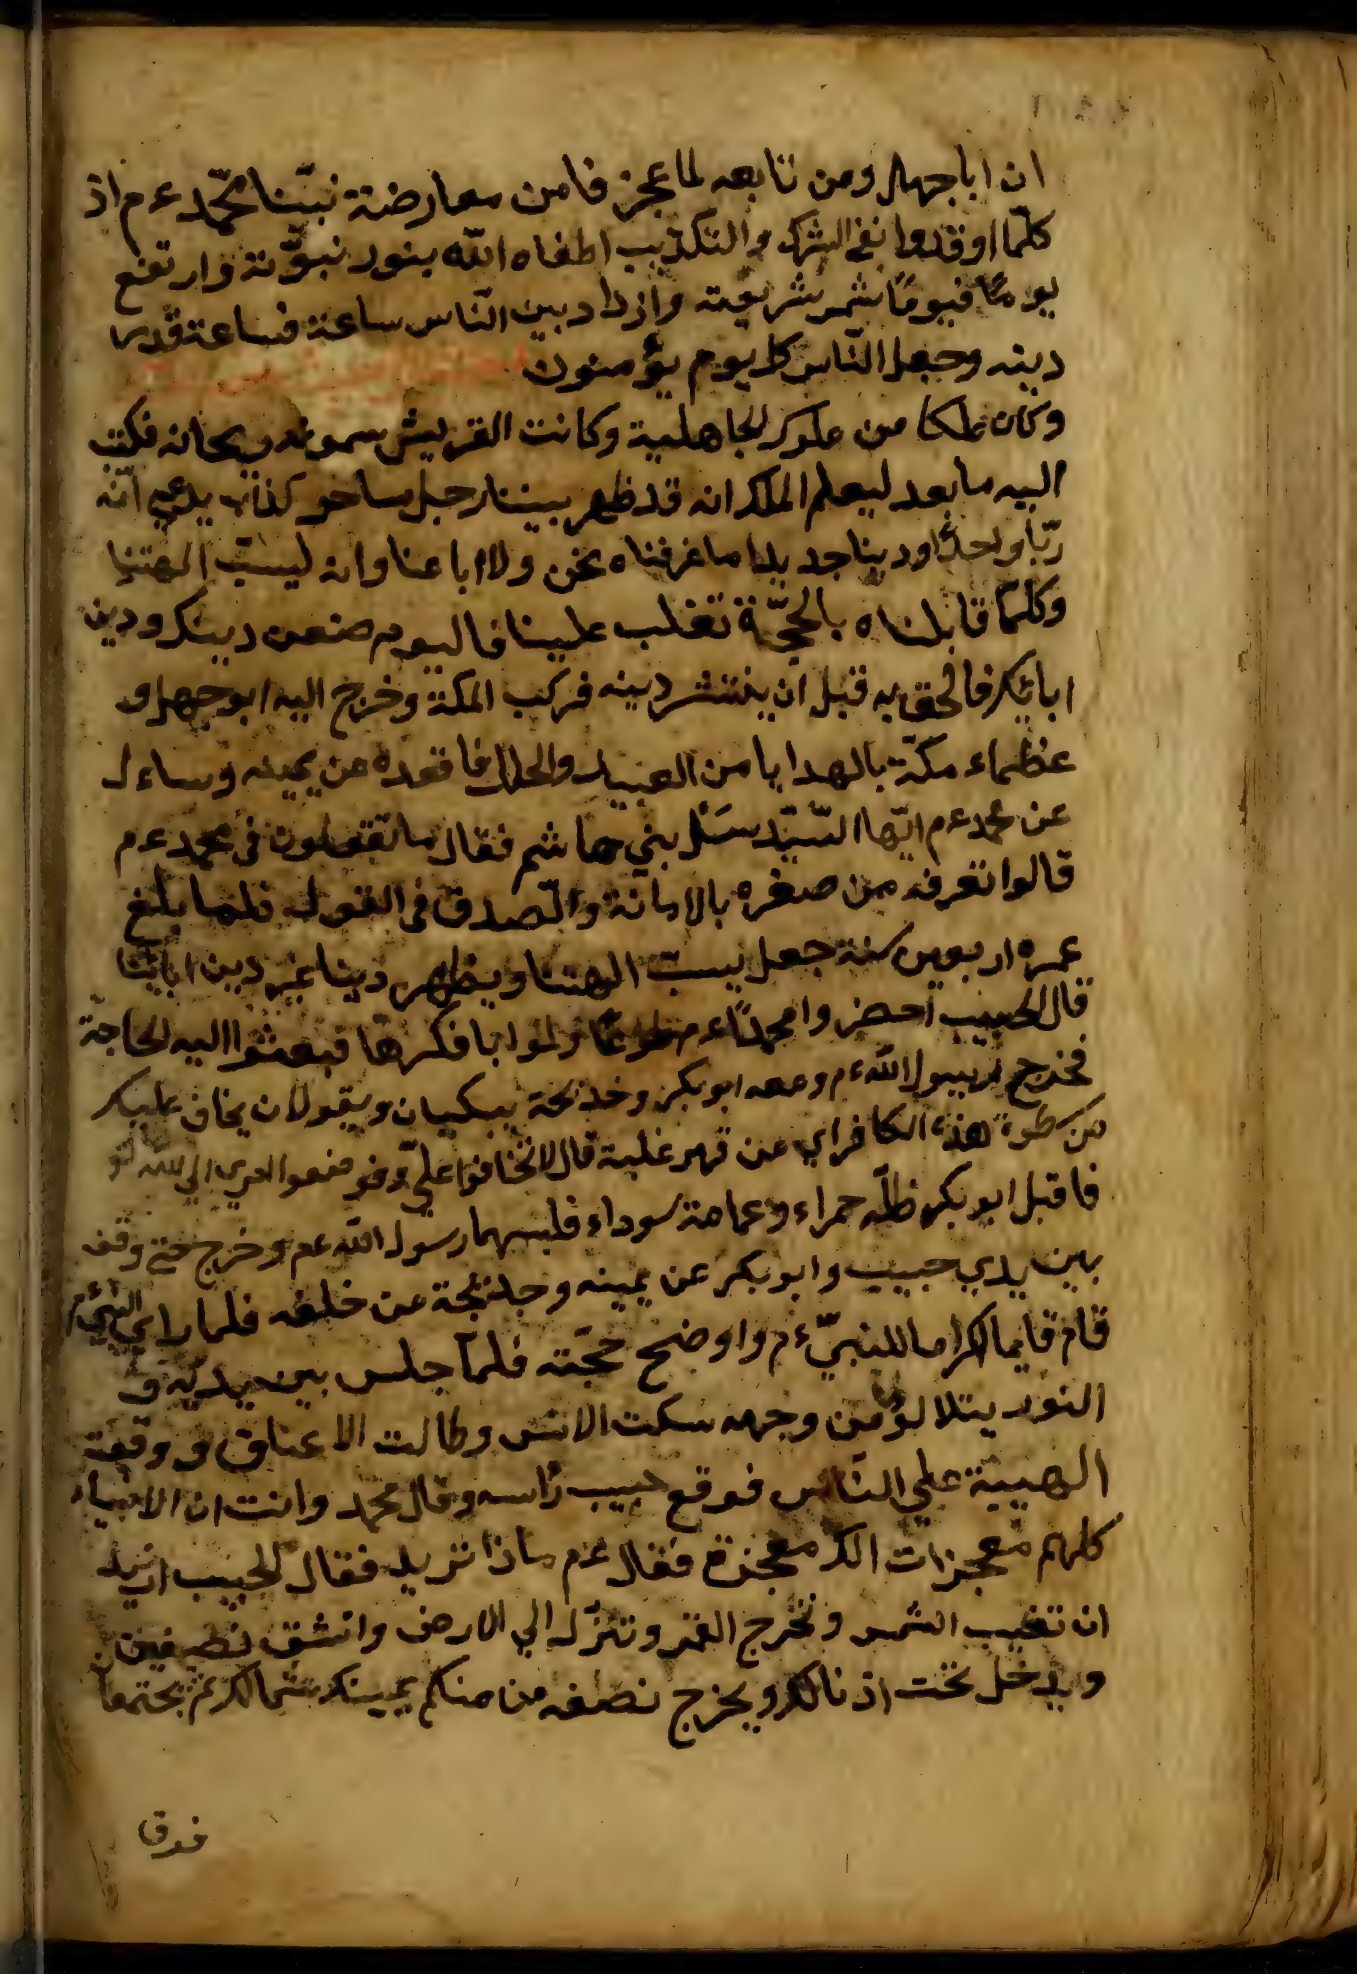 ان اباجهل ومن تابعه لما عجز فا من معارضة نبيّنا محمّد ءم اذ
كلّما اوقدوا الشرك والتكذيب اطفاه الله بنور نبوّته وارتفع
يومًا فيومًا شمس شريعته وازداد بين الناس ساعة فساعة قدر
دينه وجعل النّاس كل يوم يؤمنون
وكان ملكا من ملوك الجاهلية وكانت القريش سموه ريحانه فكتب
اليه ما بعد ليعلم الملك انه قد ظهر بيننا رجل ساحر كذاب يدعي انّه
ربّا واحدًا ودينا جديدا ما عرفناه نحن ولا اباءنا وانه ليسبّ الهتنا
وكلّما قابلناه بالحجّة تغلب علينا فاليوم ضعف دينك ودين
ابائك فالحق به قبل ان ينتشر دينه فركب المكة وخرج اليه ابوجهل و
عظماء مكّة بالهدايا من العبيد والحلل فاقعده عن يمينه وساءل
عن محمد ءم ايّها السيّد سَئل بني هاشم فقال ما تقولون في محمد ءم
قالوا نعرفه من صغره بالامانة والصدق في القول فلما بلغ
عمره اربعين سنة جعل يسبّ الهتنا ويظهر دينا غير دين ابائنا
قال الحبيب احضروا محمدًا ءم طوعًا ولو ابا فكرها فبعثوا اليه الحاجة
فخرج رسول الله ءم ومعه ابوبكر وخديجة يبكيان ويقولان يخاف عليك
من سطوة هذه الكافر اي من قهر غلبة قال لا تخافوا عليّ وفوضوا امري الي الله تع
فاقبل ابوبكر حمراء وعمامة سوداء فلبسهما رسول الله عم وخرج حتي وقف
بين يدي حبيب وابوبكر عن يمينه وخديجة عن خلفه فلما راي النبي ءم
قام قايما اكراما للنبيّ ءم واوضح حجّته فلمّا جلس بين يديه و
النور يتلالؤ من وجهه سكت الانس وطالت الاعناق ووقعت
الهيبة علي النّاس فرفع حبيب رأسه وقال محمد وانت ان الانبياء
كلهم معجزات الك معجزة فقال ءم ماذا تريد فقال الحبيب اريد
ان تغيب الشمس وتخرج القمر وتنزّله الي الارض وانشق نصفين
ويدخل تحت اذيالك ويخرج نصفه من منكم يمينك شمالك ثم يجتمعا
فوق